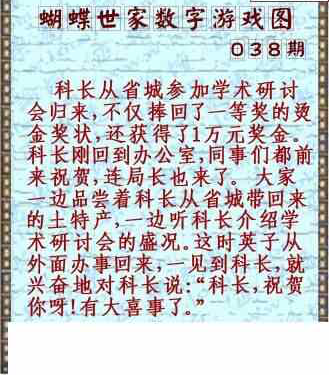 蝴蝶世家数字游戏图
038期
科长从省城参加学术研讨
会归来,不仅捧回了一等奖的烫
金奖状,还获得了1万元奖金。
科长刚回到办公室,同事们都前
来祝贺,连局长也来了。大家
一边品尝着科长从省城带回来
的土特产,一边听科长介绍学
术研讨会的盛况。这时英子从
外面办事回来,一见到科长,就
兴奋地对科长说:“科长,祝贺
你呀!有大喜事了。”